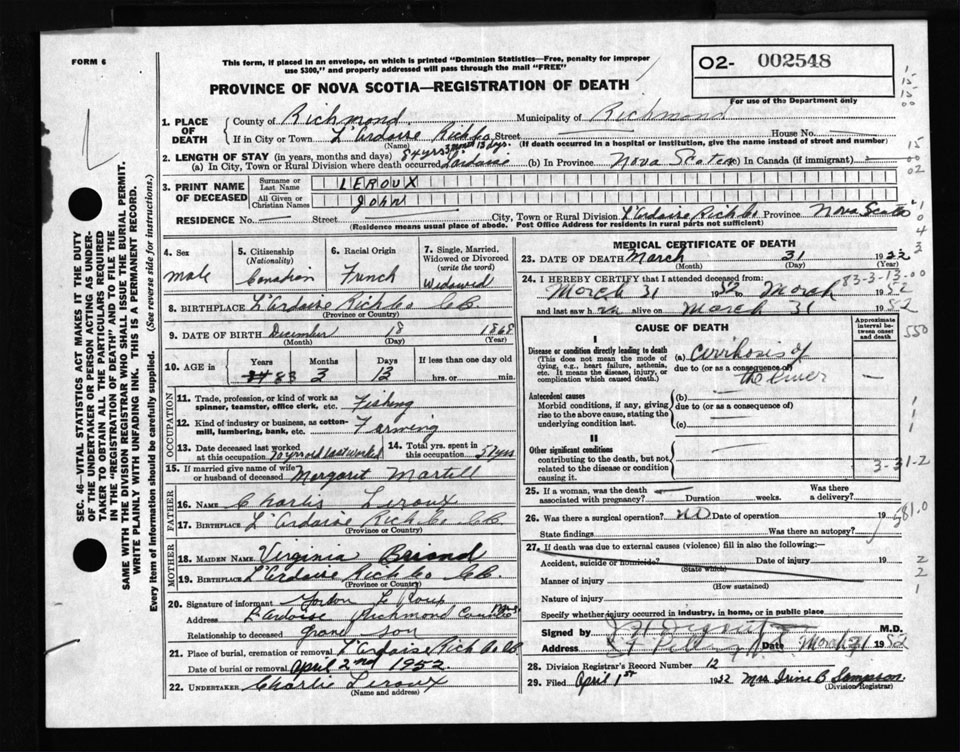 FORM 6
This form, if placed in an envelope, on which is printed "Dominion Statistics—Free, penalty for improper
use $300," and properly addressed will pass through the mail "FREE"
O2- 002548
For use of the Department only
PROVINCE OF NOVA SCOTIA—REGISTRATION OF DEATH
1. PLACE OF DEATH
County of Richmond Municipality of Richmond
If in City or Town L'Ardoise Rich Co Street House No.
(Name) (If death occurred in a hospital or institution, give the name instead of street and number)
2. LENGTH OF STAY (in years, months and days)
(a) In City, Town or Rural Division where death occurred L'Ardoise (b) In Province Nova Scotia (c) In Canada (if immigrant)
3. PRINT NAME OF DECEASED
Surname or Last Name LEROUX
All Given or Christian Names John
RESIDENCE No. Street City, Town or Rural Division L'Ardoise Rich Co Province Nova Scotia
(Residence means usual place of abode. Post Office Address for residents in rural parts not sufficient)
4. Sex
male
5. Citizenship
(Nationality)
Canadian
6. Racial Origin
French
7. Single, Married, Widowed or Divorced
(write the word)
Widowed
8. BIRTHPLACE L'Ardoise Rich Co C B
(Province or Country)
9. DATE OF BIRTH December 18 1868
(Month) (Day) (Year)
10. AGE in
Years Months Days If less than one day old
83 3 13 hrs. or min.
OCCUPATION
11. Trade, profession, or kind of work as spinner, teamster, office clerk, etc. Fishing
12. Kind of industry or business, as cotton-mill, lumbering, bank, etc. Farming
13. Date deceased last worked at this occupation last worked
14. Total yrs. spent in this occupation yrs
15. If married give name of wife or husband of deceased Margaret Martell
FATHER
16. NAME Charlis Leroux
17. BIRTHPLACE L'Ardoise Rich Co C B
(Province or Country)
MOTHER
18. MAIDEN NAME Virginia Briand
19. BIRTHPLACE L'Ardoise Rich Co C B.
(Province or Country)
20. Signature of informant Gordon Le Roux
Address L'Ardoise Richmond County
Relationship to deceased Grand son
21. Place of burial, cremation or removal L'Ardoise Rich Co C B
Date of burial or removal April 2nd 1952.
22. UNDERTAKER Charlie Leroux
(Name and address)
MEDICAL CERTIFICATE OF DEATH
23. DATE OF DEATH March 31 1952
(Month) (Day) (Year)
24. I HEREBY CERTIFY that I attended deceased from:
83-3-13-00
March 31 1952 to March 1952
and last saw him alive on March 31 1952
CAUSE OF DEATH
Approximate interval between onset and death
I
Disease or condition directly leading to death
(This does not mean the mode of dying, e.g., heart failure, asthenia, etc. It means the disease, injury, or complication which caused death.)
(a) Cirrhosis of the liver
due to (or as a consequence of)
Antecedent causes
Morbid conditions, if any, giving rise to the above cause, stating the underlying condition last.
(b)
due to (or as a consequence of)
(c)
II
Other significant conditions
contributing to the death, but not related to the disease or condition causing it.
3-31-2
25. If a woman, was the death associated with pregnancy? Duration weeks. Was there a delivery?
26. Was there a surgical operation? no Date of operation 19
581.0
State findings Was there an autopsy?
27. If death was due to external causes (violence) fill in also the following:—
Accident, suicide or homicide? Date of injury 19
(State which)
Manner of injury
(How sustained)
Nature of injury
Specify whether injury occurred in industry, in home, or in public place
Signed by M.D.
Address Date March 31 1952
28. Division Registrar's Record Number 12
29. Filed April 1st 1952 Mrs Irine B Sampson
(Division Registrar)
SEC. 46—VITAL STATISTICS ACT MAKES IT THE DUTY
OF THE UNDERTAKER OR PERSON ACTING AS UNDER-
TAKER TO OBTAIN ALL THE PARTICULARS REQUIRED
IN THE "REGISTRATION OF DEATH" AND TO FILE THE
SAME WITH THE DIVISION REGISTRAR WHO SHALL ISSUE THE BURIAL PERMIT.
WRITE PLAINLY WITH UNFADING INK. THIS IS A PERMANENT RECORD.
Every item of Information should be carefully supplied. (See reverse side for instructions.)